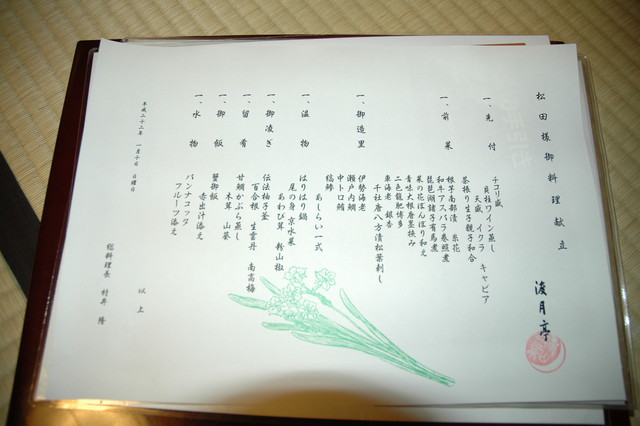 松田様御料理献立
渡月亭
一、先付
チコリ盛
貝柱ワイン蒸し
天盛 イクラ キャビア
茶振り生子親子和合
一、前菜
根芋南部漬 糸花
和牛アスパラ巻照煮
琵琶湖諸子有馬煮
菜の花ぼんぼり和え
青味大根唐墨挟み
車海老 銀杏
二色龍肥博多
千社唐八方漬松葉刺し
一、御造里
伊勢海老
瀬戸内鯛
中トロ鮪
あしらい一式
一、温物
はりはり鍋
尾の身 京水菜
あわび茸 粉山椒
一、御凌ぎ
伝法柚子釜
百合根 生雲丹 南高梅
一、留肴
甘鯛かぶら蒸し
木耳 山葵
一、御飯
蟹御飯
赤出汁添え
一、水物
パンナコッタ
フルーツ添え
以上
平成二十二年 一月十日 日曜日
総料理長 村井 隆